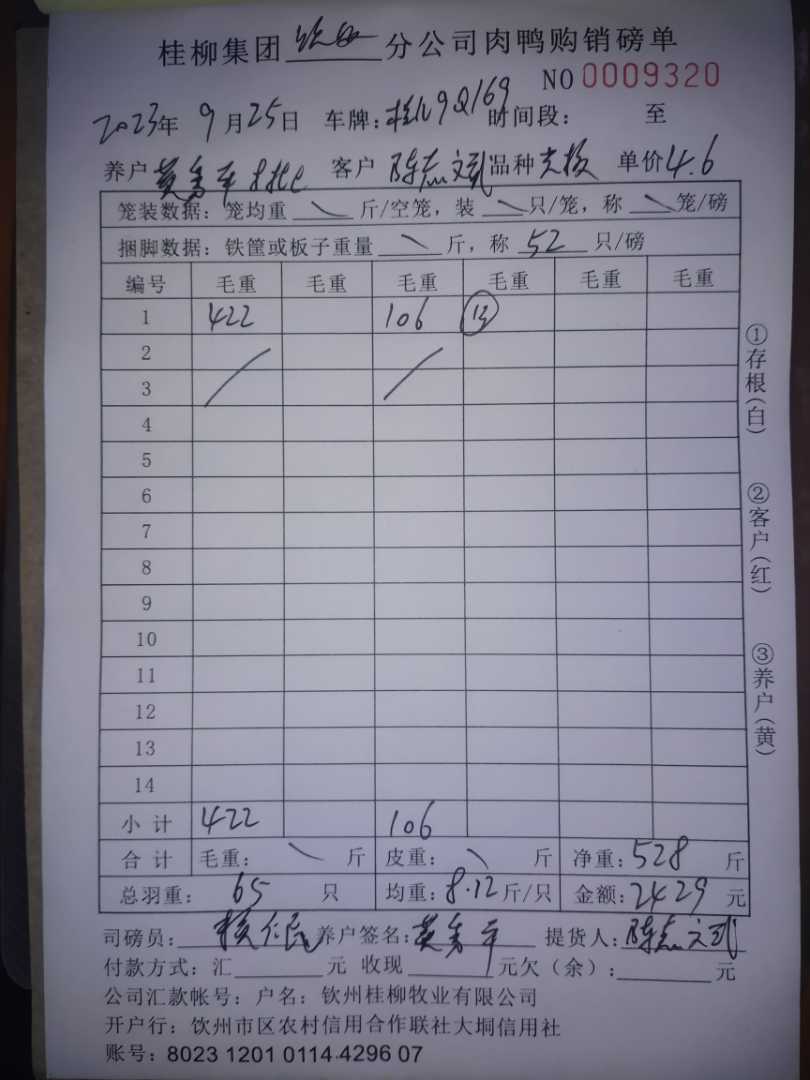 桂柳集团 钦州 分公司肉鸭购销磅单
NO 0009320
2023年 9月25日 车牌:桂N9Q169 时间段: 至
养户 黄秀平 客户 陈志文 品种 单价 4.6
笼装数据:笼均重 \ 斤/空笼,装 \ 只/笼,称 \ 笼/磅
捆脚数据:铁筐或板子重量 \ 斤,称 52 只/磅
编号 毛重 毛重 毛重 毛重 毛重 毛重
1 422 106 13
2
3
4
5
6
7
8
9
10
11
12
13
14
小计 422 106
合计 毛重: \ 斤 皮重: \ 斤 净重:528 斤
总羽重: 65 只 均重:8.12斤/只 金额:2429 元
司磅员: 养户签名:黄秀平 提货人:陈志文
付款方式:汇 元 收现 元欠(余): 元
公司汇款帐号:户名:钦州桂柳牧业有限公司
开户行:钦州市区农村信用合作联社大垌信用社
账号:8023 1201 0114 4296 07
①存根(白)
②客户(红)
③养户(黄)